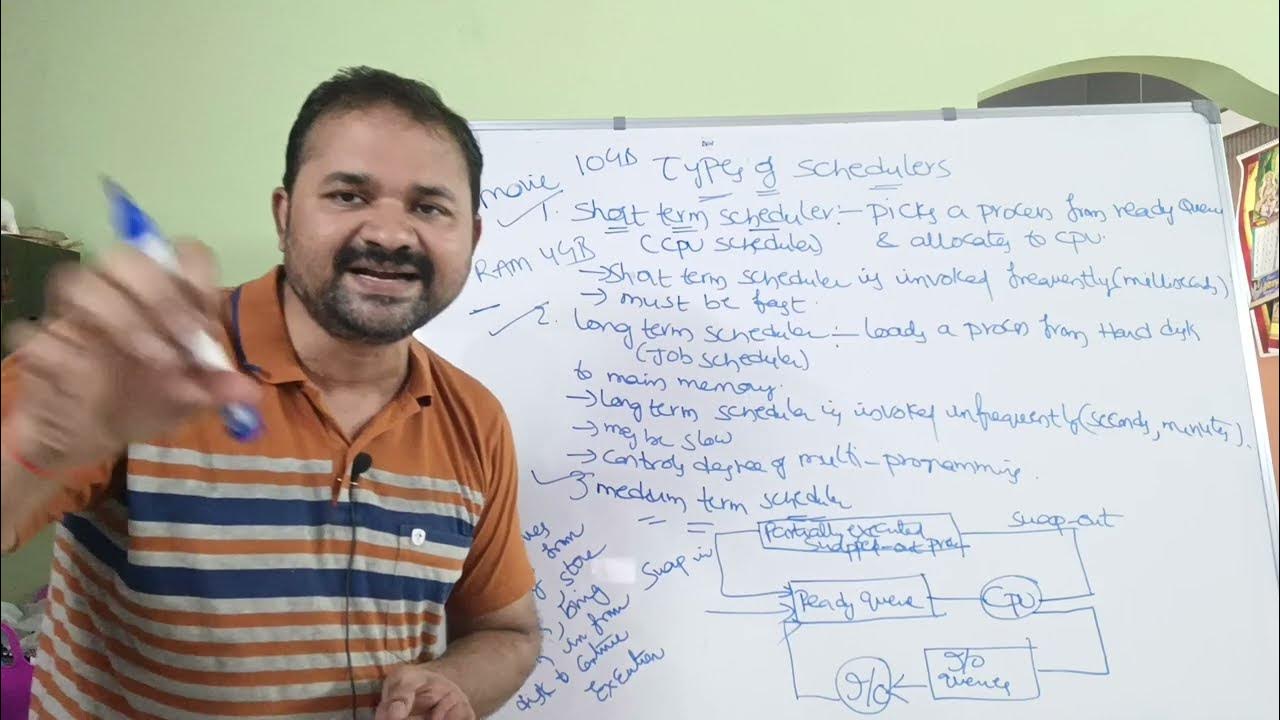 movie 10GB Types of schedulers
1. Short term scheduler:- Picks a process from ready Queue
(CPU scheduler) & allocates to CPU.
RAM 4GB
→ Short term scheduler is invoked frequently (milliseconds)
→ must be fast.
2. Long term scheduler:- Loads a process from Hard disk
(Job scheduler)
to main memory.
→ Long term scheduler is invoked infrequently (seconds, minutes).
→ may be slow
→ Controls degree of multi-programming.
3 medium term scheduler
Partially executed
swapped-out process
swap-out
swap in
Ready Queue
CPU
I/O
I/O
queues
from
store
bring
in from
disk to continue
Execution